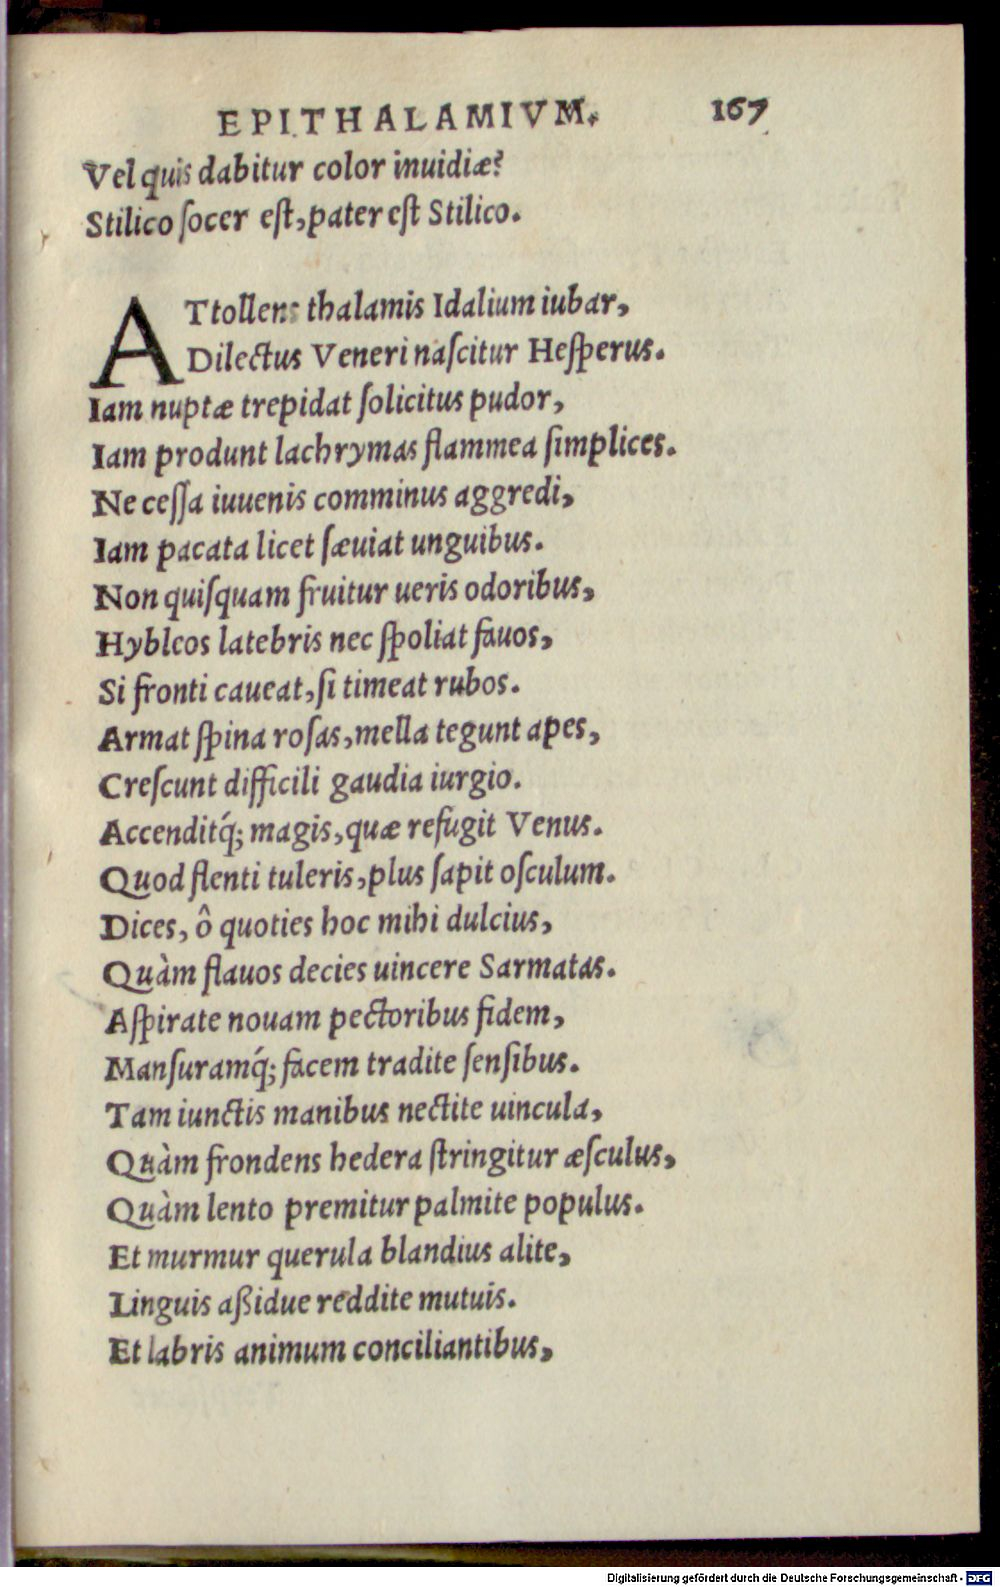 EPITHALAMIVM. 167
Vel quis dabitur color inuidiæ?
Stilico ſocer eſt, pater eſt Stilico.
ATtollens thalamis Idalium iubar,
Dilectus Veneri naſcitur Heſperus.
Iam nuptæ trepidat ſolicitus pudor,
Iam produnt lachrymas flammea ſimplices.
Ne ceſſa iuuenis comminus aggredi,
Iam pacata licet ſæuiat unguibus.
Non quiſquam fruitur ueris odoribus,
Hybleos latebris nec ſpoliat fauos,
Si fronti caueat, ſi timeat rubos.
Armat ſpina roſas, mella tegunt apes,
Creſcunt difficili gaudia iurgio.
Accenditq́; magis, quæ refugit Venus.
Quod flenti tuleris, plus ſapit oſculum.
Dices, ô quoties hoc mihi dulcius,
Quàm flauos decies uincere Sarmatas.
Aſpirate nouam pectoribus fidem,
Manſuramq́; facem tradite ſenſibus.
Tam iunctis manibus nectite uincula,
Quàm frondens hedera ſtringitur æſculus,
Quàm lento premitur palmite populus.
Et murmur querula blandius alite,
Linguis aßidue reddite mutuis.
Et labris animum conciliantibus,
Digitalisierung gefördert durch die Deutsche Forschungsgemeinschaft - DFG